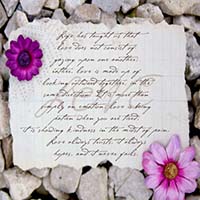 Life has taught us that
love does not consist of
gazing upon one another;
rather, love is made up of
looking outward together in the
same direction. It is more than
simply an emotion. Love is being
patient when you are tired.
It is showing kindness in the midst of pain.
Love always trusts, it always
hopes, and it never fails.